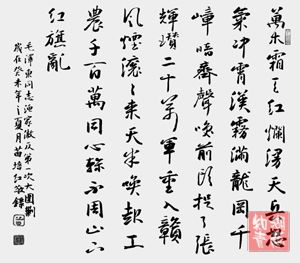 萬木霜天紅爛漫天兵怒
氣冲霄漢霧滿龍岡千
嶂暗齊聲喚前頭捉了張
輝瓚二十萬軍重入贛
風煙滾滾来天半喚起工
農千百萬同心幹不周山下
紅旗亂
毛澤東同志漁家傲反第一次大圍剿
歲在癸未年之夏月苗培紅敬錄